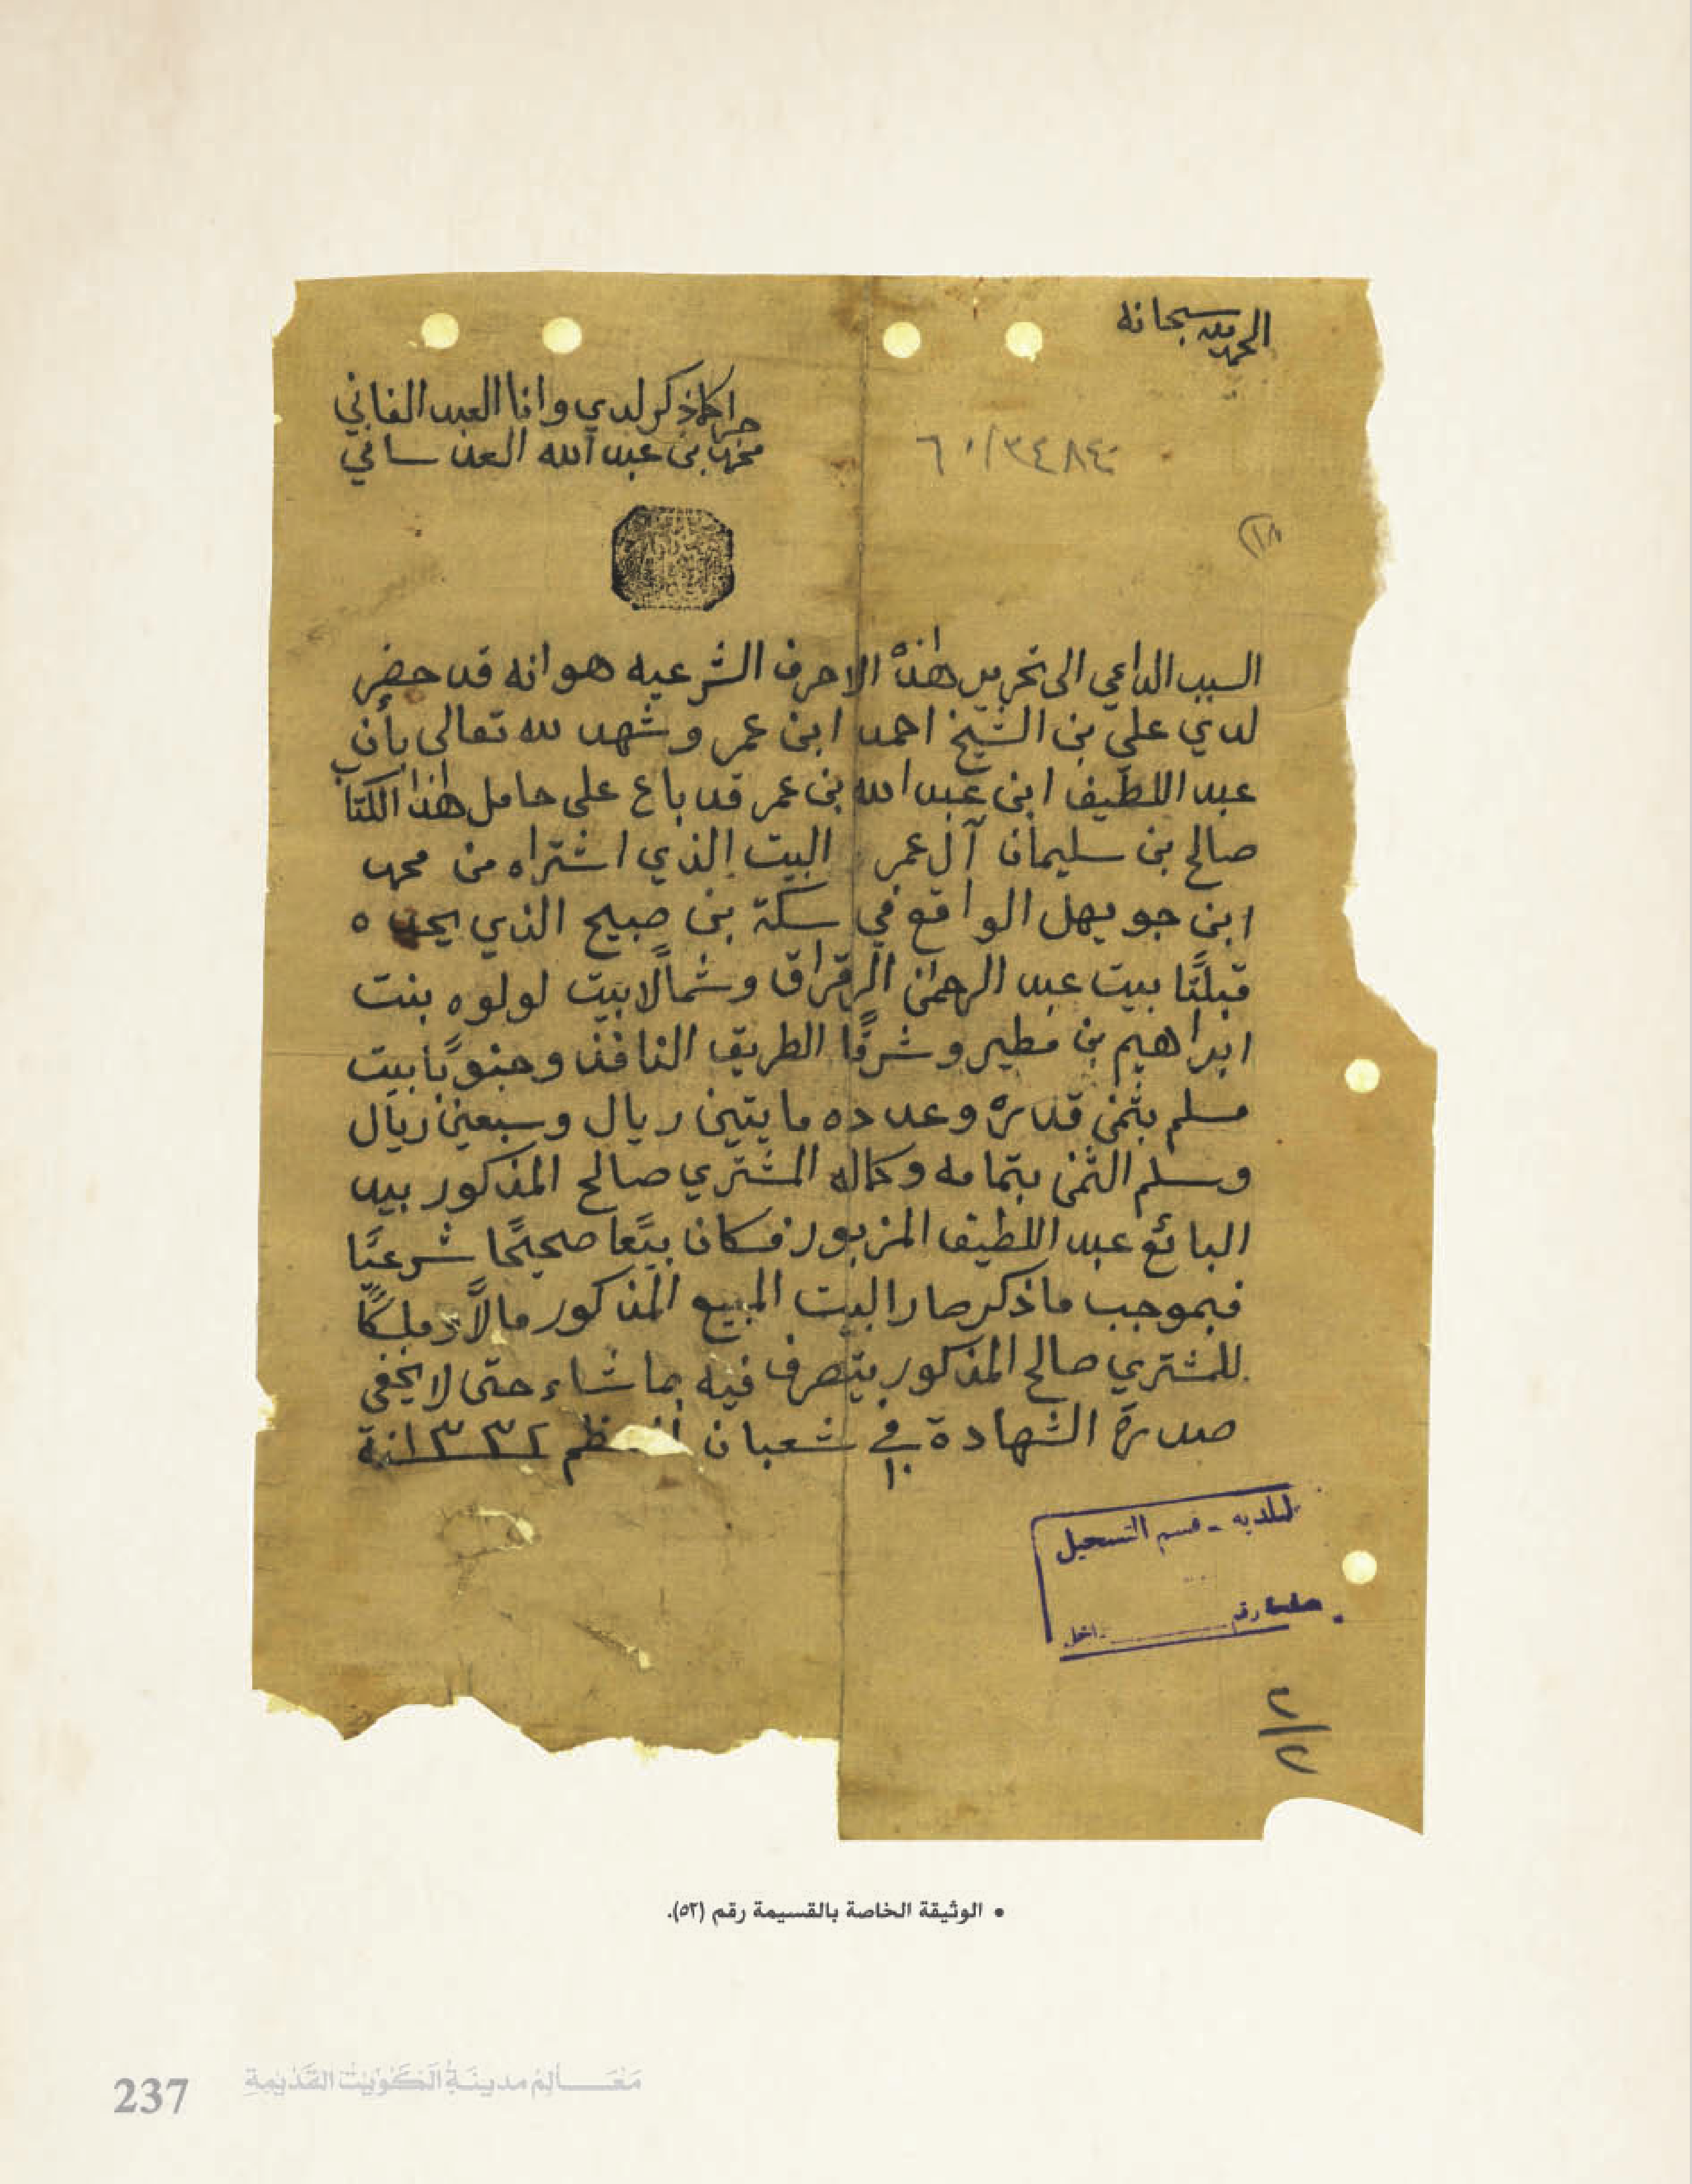 الحمد لله سبحانه
جرا كما ذكر لدي وانا العبد الفاني
محمد بن عبد الله العدساني
٦٠/٣٤٨٤
السبب الداعي الى تحرير هاذه الاحرف الشرعيه هو انه قد حضر
لدي علي بن الشيخ احمد ابن عمر وشهد لله تعالى بأن
عبد اللطيف ابن عبد الله بن عمر قد باع على حامل هاذا الكتاب
صالح بن سليمان آل عمر البيت الذي اشتراه من محمد
ابن جويهل الواقع في سكة بن صبيح الذي يحده
قبلتًا بيت عبد الرحمن الرقراق وشمالًا بيت لولوه بنت
ابراهيم بن مطير وشرقًا الطريق النافذ وجنوبًا بيت
مسلم بثمن قدره وعدده مايتين ريال وسبعين ريال
وسلم الثمن بتمامه وكماله المشتري صالح المذكور بيد
البائع عبد اللطيف المزبور فكان بيعًا صحيحًا شرعيًا
فبموجب ما ذكر صار البيت المبيع المذكور مالًا وملكًا
للمشتري صالح المذكور يتصرف فيه بما شاء حتى لا يخفى
صدرة الشهادة في ١٠ شعبان ١٣٣٢
البلديه - قسم التسجيل
رقم داخل
٢/٢
• الوثيقة الخاصة بالقسيمة رقم (٥٢).
237 مَعَالِمُ مدينَةِ الكُوَيْت القَدِيمَةِ